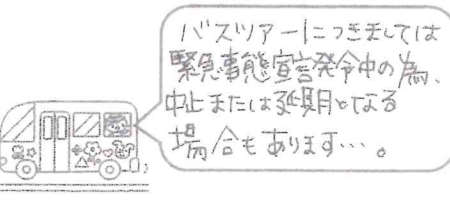 バスツアーにつきましては
緊急事態宣言発令中の為、
中止または延期となる
場合もあります…。